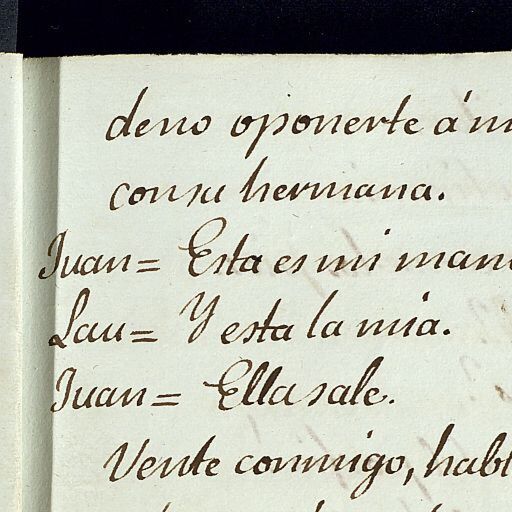 deno oponerte á m
con su hermana.
Juan = Esta es mi man
Lau = Y esta la mia.
Juan = Ella sale.
Vente conmigo, habl